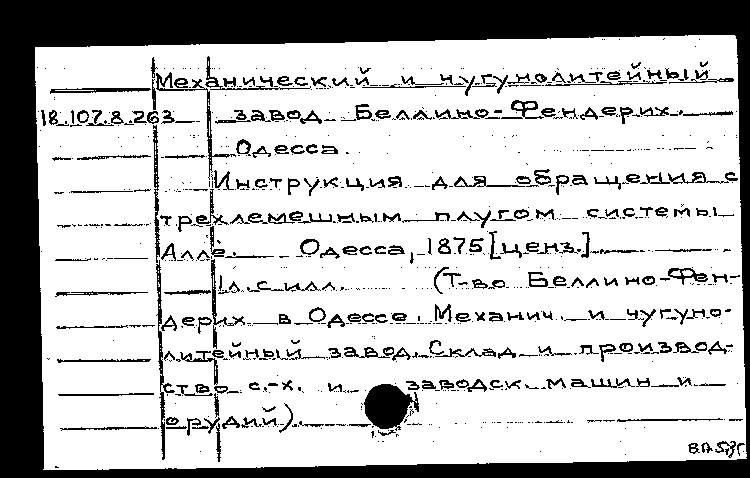 Механический и чугунолитейный
18.107.8.263 завод Беллино-Фендерих.
Одесса.
Инструкция для обращения с
трехлемешным плугом системы
Аллё. Одесса, 1875 [ценз.]
1л. с илл. (Т-во Беллино-Фен-
дерих в Одессе. Механич. и чугуно-
литейный завод. Склад и производ-
ство с.-х. и заводск. машин и
орудий).